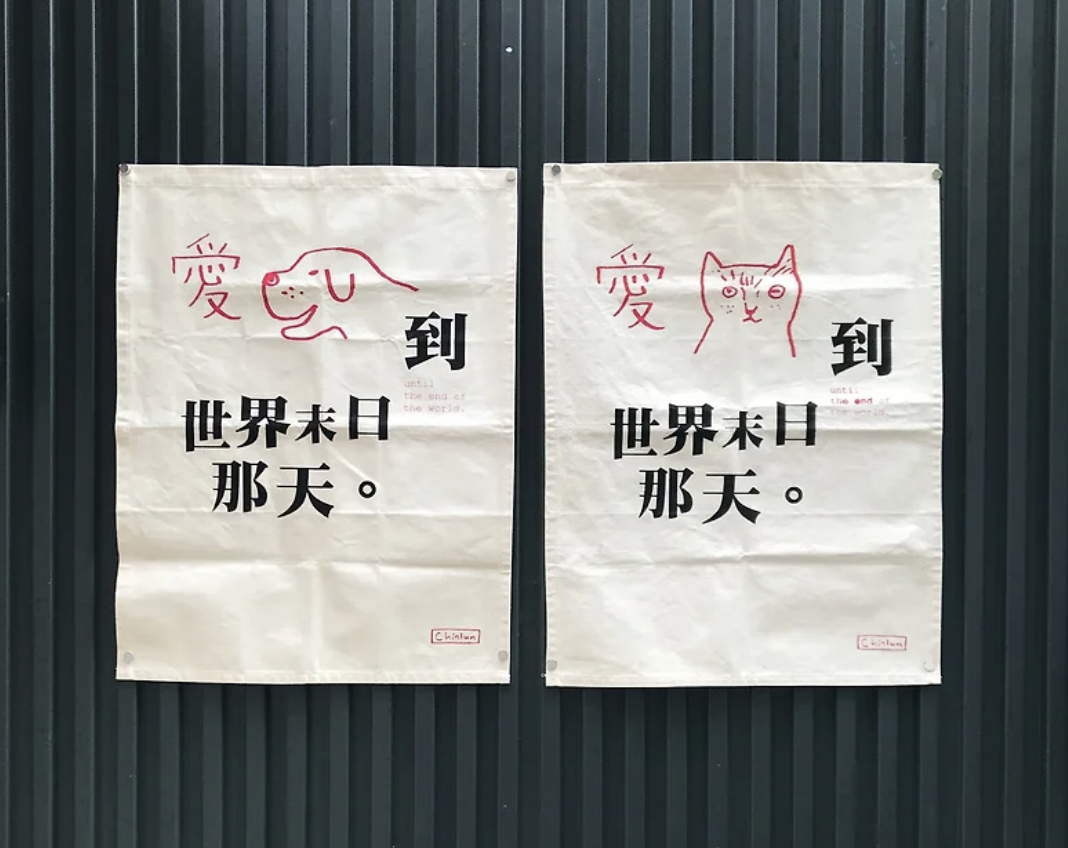 愛
到
until
the end of
the world.
世界末日
那天。
Chinlun
愛
到
until
the end of
the world.
世界末日
那天。
Chinlun